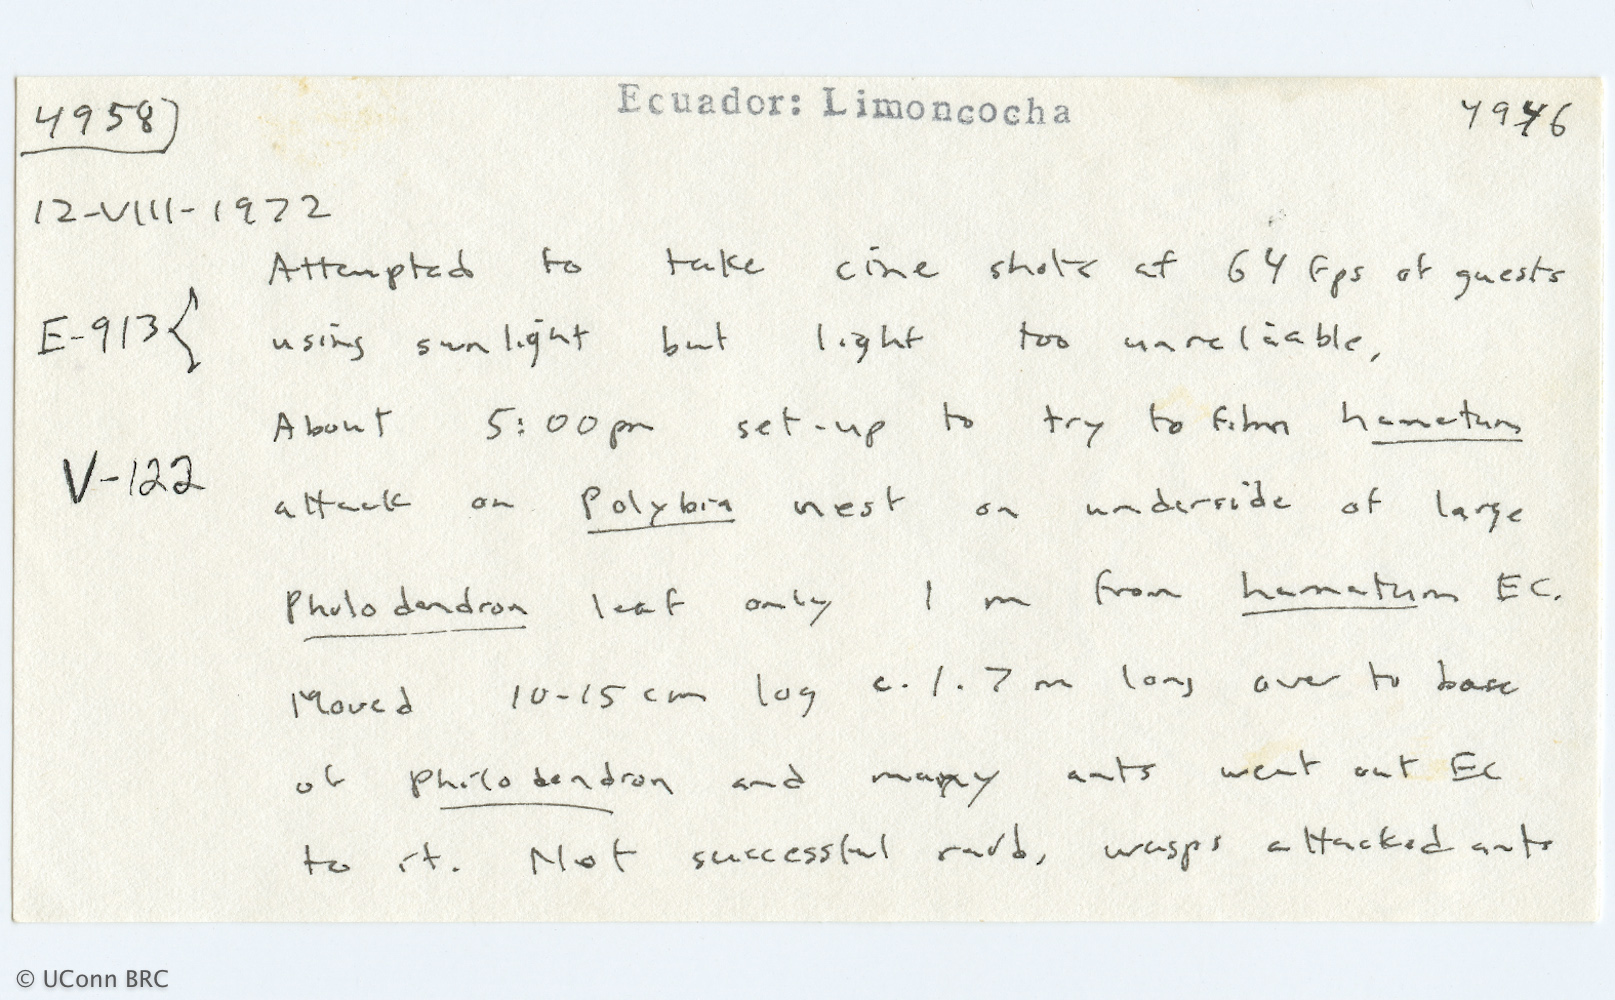 4958) Ecuador: Limoncocha 4946
12-VIII-1972
Attempted to take cine shots at 64 fps of guests
E-913{ using sunlight but light too unreliable.
About 5:00pm set-up to try to film hamatum
V-122 attack on Polybia nest on underside of large
Philodendron leaf only 1 m from hamatum EC.
Moved 10-15 cm log c. 1.7 m long over to base
of Philodendron and many ants went out EC
to it. Not successful raid, wasps attacked ants
© UConn BRC